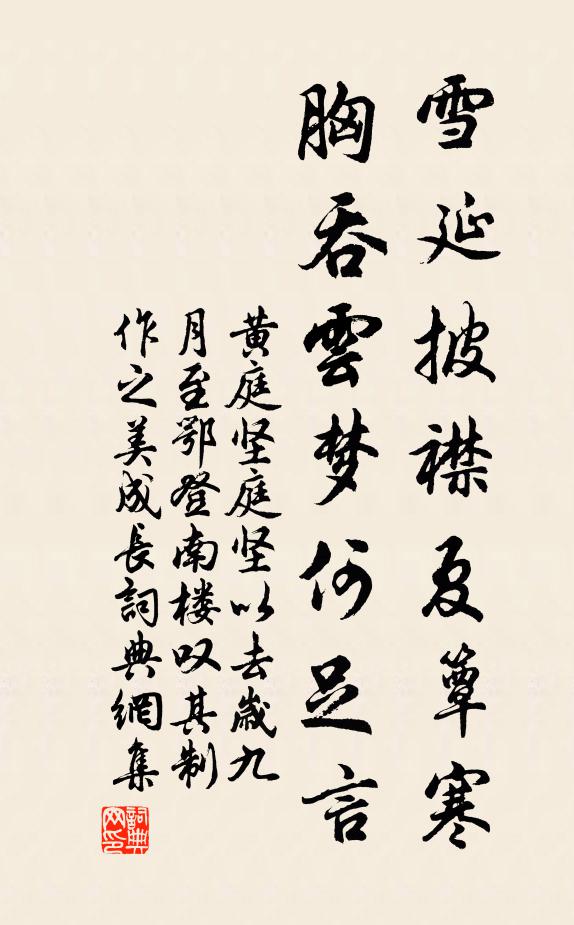 雪延披襟夏簟寒
胸吞雲梦何足言
黄庭坚庭坚以去歲九
月至鄂登南楼叹其制
作之美成長詞典網集
詞典